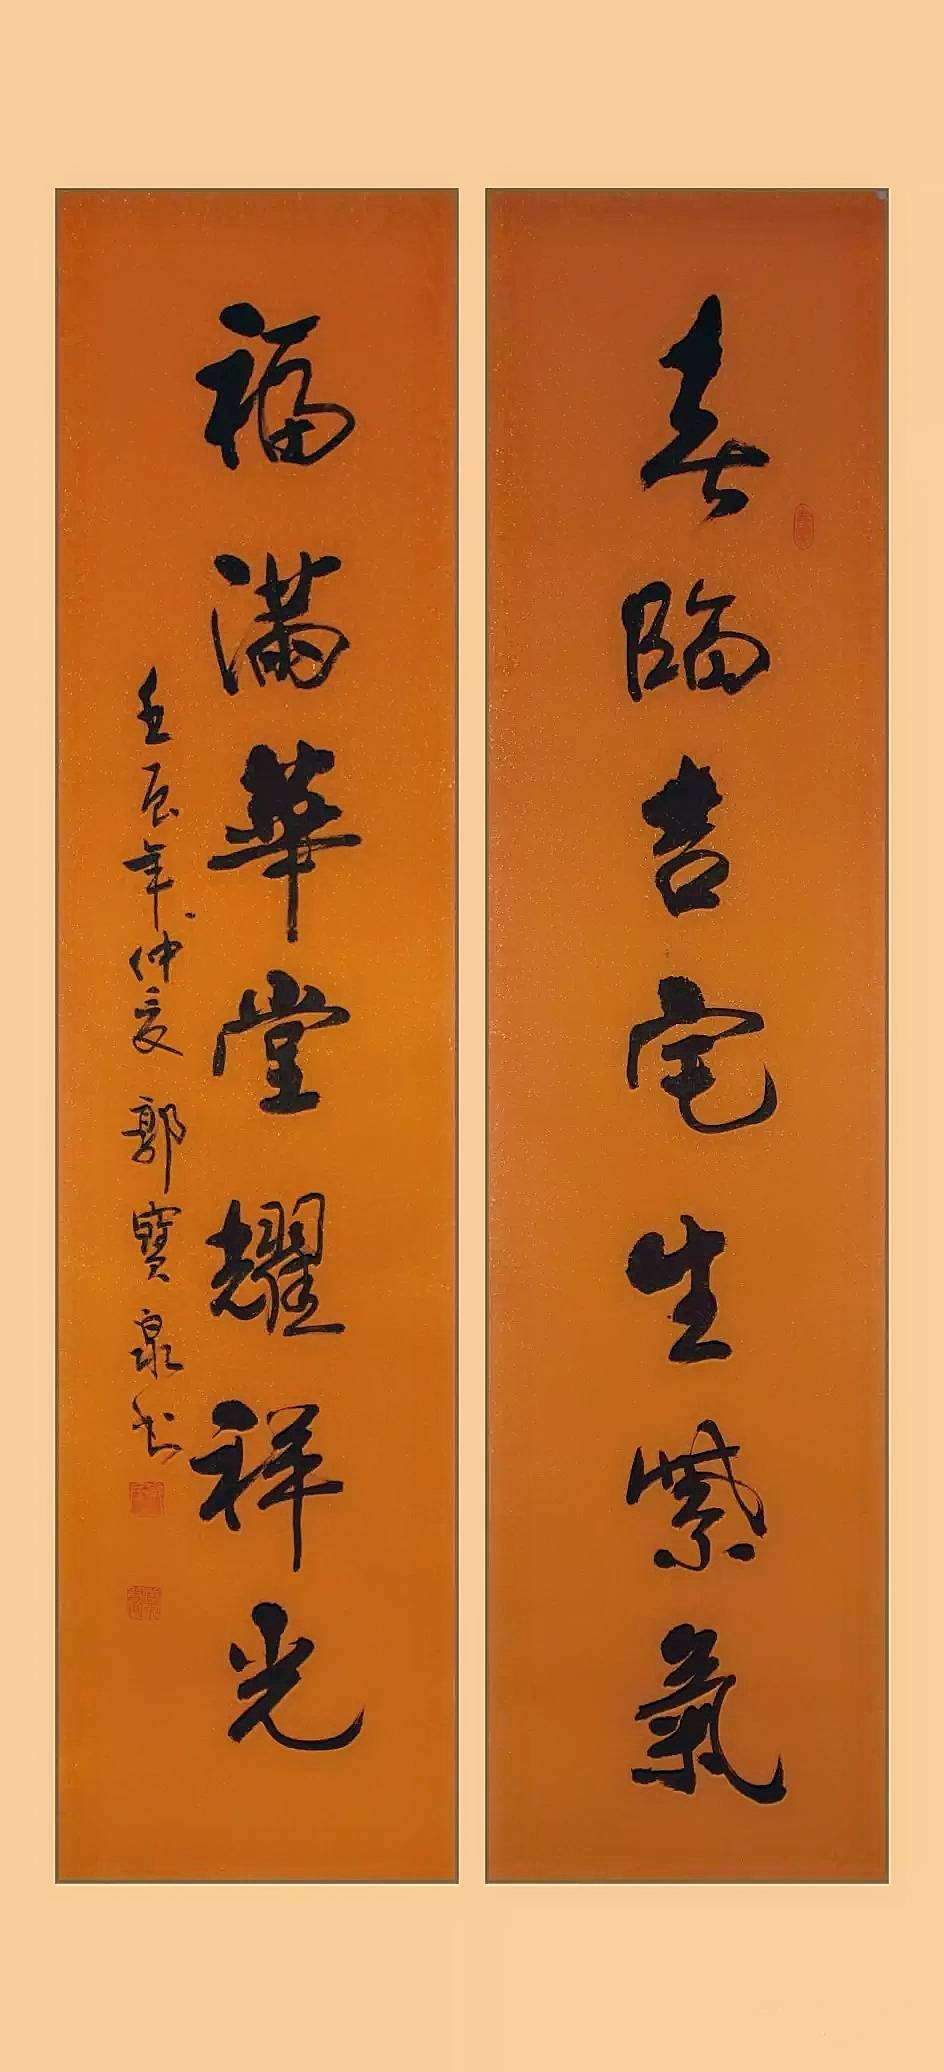 春臨吉宅生紫氣
福滿華堂耀祥光
壬辰年仲夏 郭寶泉书